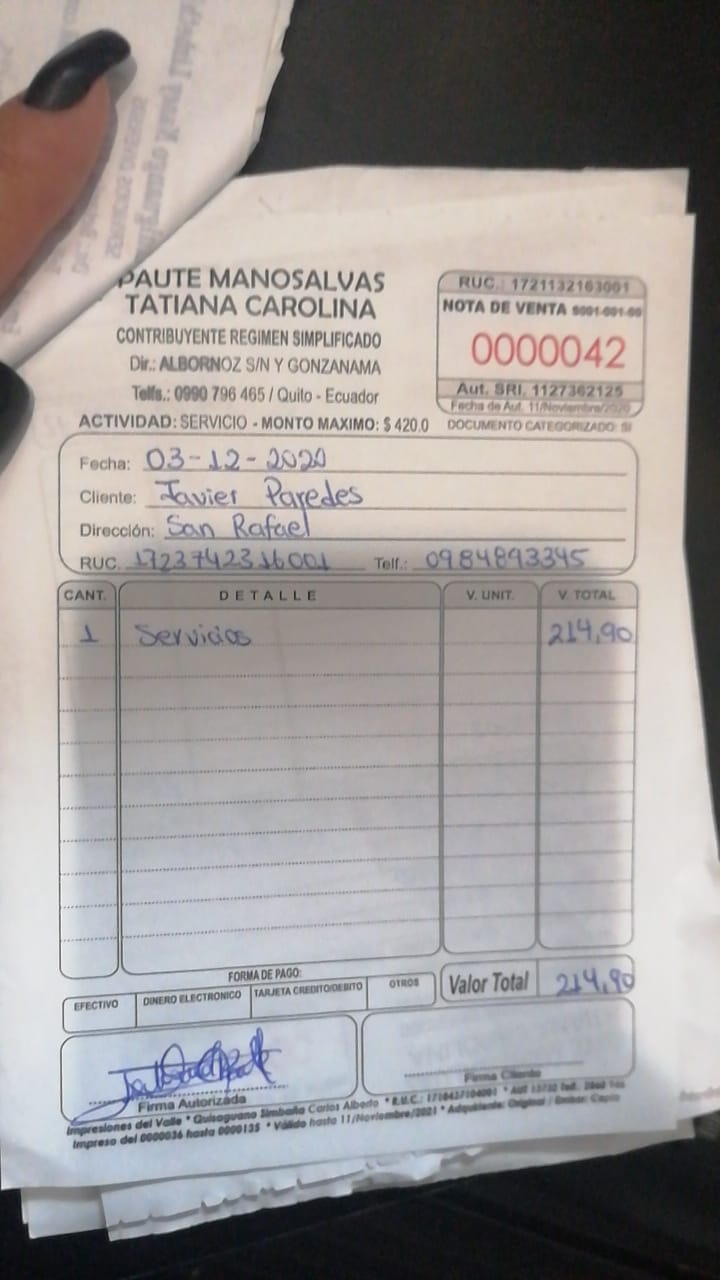 PAUTE MANOSALVAS
TATIANA CAROLINA
CONTRIBUYENTE REGIMEN SIMPLIFICADO
Dir.: ALBORNOZ S/N Y GONZANAMA
Telfs.: 0990 796 465 / Quito - Ecuador
ACTIVIDAD: SERVICIO - MONTO MAXIMO: $ 420.0
RUC.: 1721132163001
NOTA DE VENTA S001-001-00
0000042
Aut. SRI. 1127362125
Fecha de Aut. 11/Noviembre/2020
DOCUMENTO CATEGORIZADO: SI
Fecha: 03-12-2020
Cliente: Javier Paredes
Dirección: San Rafael
RUC. 1723742316001 Telf.: 0984893345
CANT. DETALLE V. UNIT. V. TOTAL
1 Servicios 214,90
FORMA DE PAGO:
EFECTIVO DINERO ELECTRONICO TARJETA CREDITO/DEBITO OTROS
Valor Total 214,90
Firma Autorizada
Firma Cliente
Impresiones del Valle * Quisaguano Simbaña Carlos Alberto * R.U.C.: * Aut
Impreso del 0000036 hasta 0000135 * Válido hasta 11/Noviembre/2021 * Adquiriente: Original / Emisor: Copia